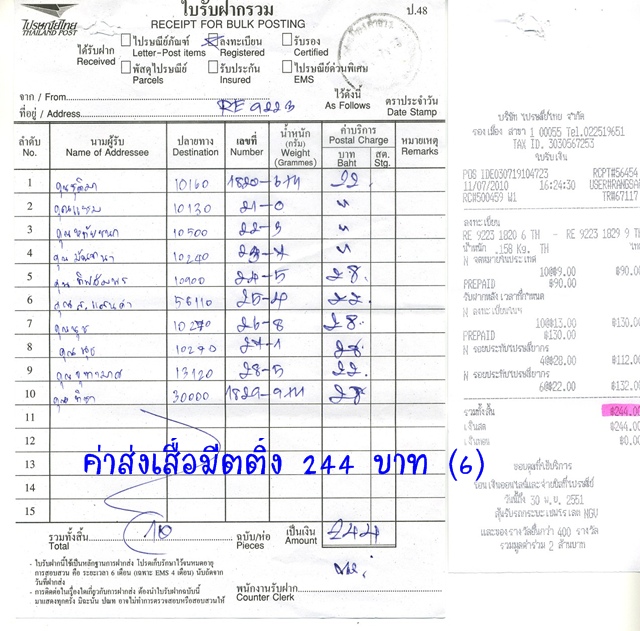 ไปรษณีย์ไทย
THAILAND POST
ใบรับฝากรวม
RECEIPT FOR BULK POSTING
ป.48
ได้รับฝาก
Received
ไปรษณีย์ภัณฑ์
Letter-Post items
ลงทะเบียน
Registered
รับรอง
Certified
พัสดุไปรษณีย์
Parcels
รับประกัน
Insured
ไปรษณีย์ด่วนพิเศษ
EMS
จาก / From
ไว้ดังนี้
As Follows
ตราประจำวัน
Date Stamp
ที่อยู่ / Address RE 9223
ลำดับ No.
นามผู้รับ Name of Addressee
ปลายทาง Destination
เลขที่ Number
น้ำหนัก (กรัม) Weight (Grammes)
ค่าบริการ Postal Charge
บาท Baht
สต. Stg.
หมายเหตุ Remarks
1 10160 1820-6TH 22.
2 10130 21-0 "
3 10500 22-3 "
4 10240 23-7 "
5 10900 24-5 28.
6 56110 25-4 22.
7 คุณนุช 10270 26-8 28.
8 คุณนุช 10270 27-1 28
9 13120 28-5 22.
10 30000 1829-9TH 28
11
12
13
14
15
ค่าส่งเสื้อมีตติ้ง 244 บาท (6)
รวมทั้งสิ้น Total 10
ฉบับ/ห่อ Pieces
เป็นเงิน Amount 244
- ใบรับฝากนี้ใช้เป็นหลักฐานการฝากส่ง โปรดเก็บรักษาไว้จนหมดอายุ
การสอบสวน คือ ระยะเวลา 6 เดือน (เฉพาะ EMS 4 เดือน) นับถัดจาก
วันที่ฝากส่ง
- การติดต่อในเรื่องใดเกี่ยวกับการฝากส่ง ต้องนำใบรับฝากฉบับนี้
มาแสดงทุกครั้ง มิฉะนั้น ปณท อาจไม่ทำการตรวจสอบหรือสอบสวนให้
พนักงานรับฝาก
Counter Clerk
บริษัท ไปรษณีย์ไทย จำกัด
รองเมือง สาขา 1 00055 Tel.022519651
TAX ID. 3030567253
ใบรับเงิน
POS IDE030719104723 RCPT#56454
11/07/2010 16:24:30 USER#RANGSAN
RC#500459 W1 TR#67117
ลงทะเบียน
RE 9223 1820 6 TM - RE 9223 1829 9 TH
น้ำหนัก .158 Kg. TH
N จดหมายในประเทศ
10@฿9.00 ฿90.00
PREPAID ฿90.00
รับฝากหลังเวลาที่กำหนด
N ลงทะเบียนในฯ
10@฿13.00 ฿130.00
PREPAID ฿130.00
N รอยประทับไปรษณียากร
4@฿28.00 ฿112.00
N รอยประทับไปรษณียากร
6@฿22.00 ฿132.00
รวมทั้งสิ้น ฿244.00
เงินสด ฿244.00
เงินทอน ฿0.00
ขอบคุณที่ใช้บริการ
วันนี้ถึง 30 พ.ย. 2551
และของรางวัลอื่นกว่า 400 รางวัล
รวมมูลค่ากว่า 2 ล้านบาท